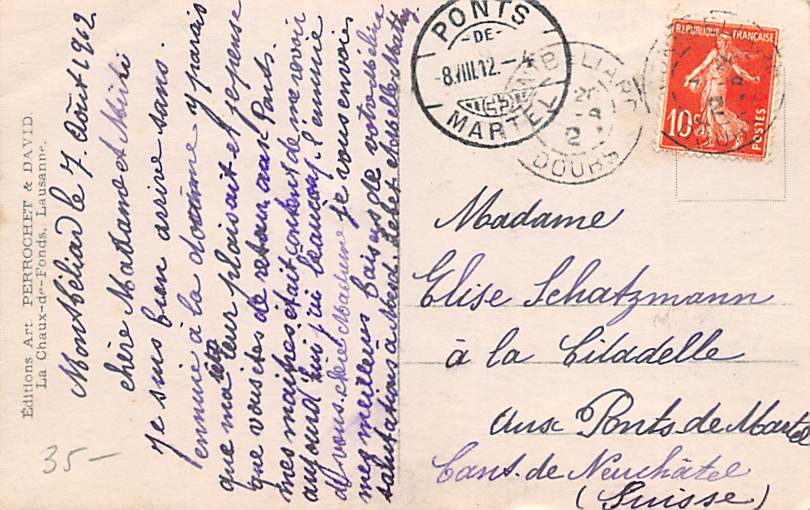 Éditions Art PERROCHET & DAVID
La Chaux-de-Fonds, Lausanne.
Montbéliard le 7. Août 1912
chère Madame et Mimi
Je suis bien arrivé sans
ennuie à la douane y parais
que ma leur plaisait et je pense
que vous êtes de retour aux Ponts.
mes maîtres était content de me revoir
aujourd'hui j'ai beaucoup l'ennuie
de vous. chère Madame je vous envoies
mes meilleurs baisers de votre Hélène
salutations a
PONTS
-DE-
-8.VIII.12.-4
MARTEL
DOUBS
REPUBLIQUE FRANÇAISE
10c
POSTES
Madame
Elise Schatzmann
à la Citadelle
aux Ponts de Martel
Cant. de Neuchâtel
(Suisse)
35-